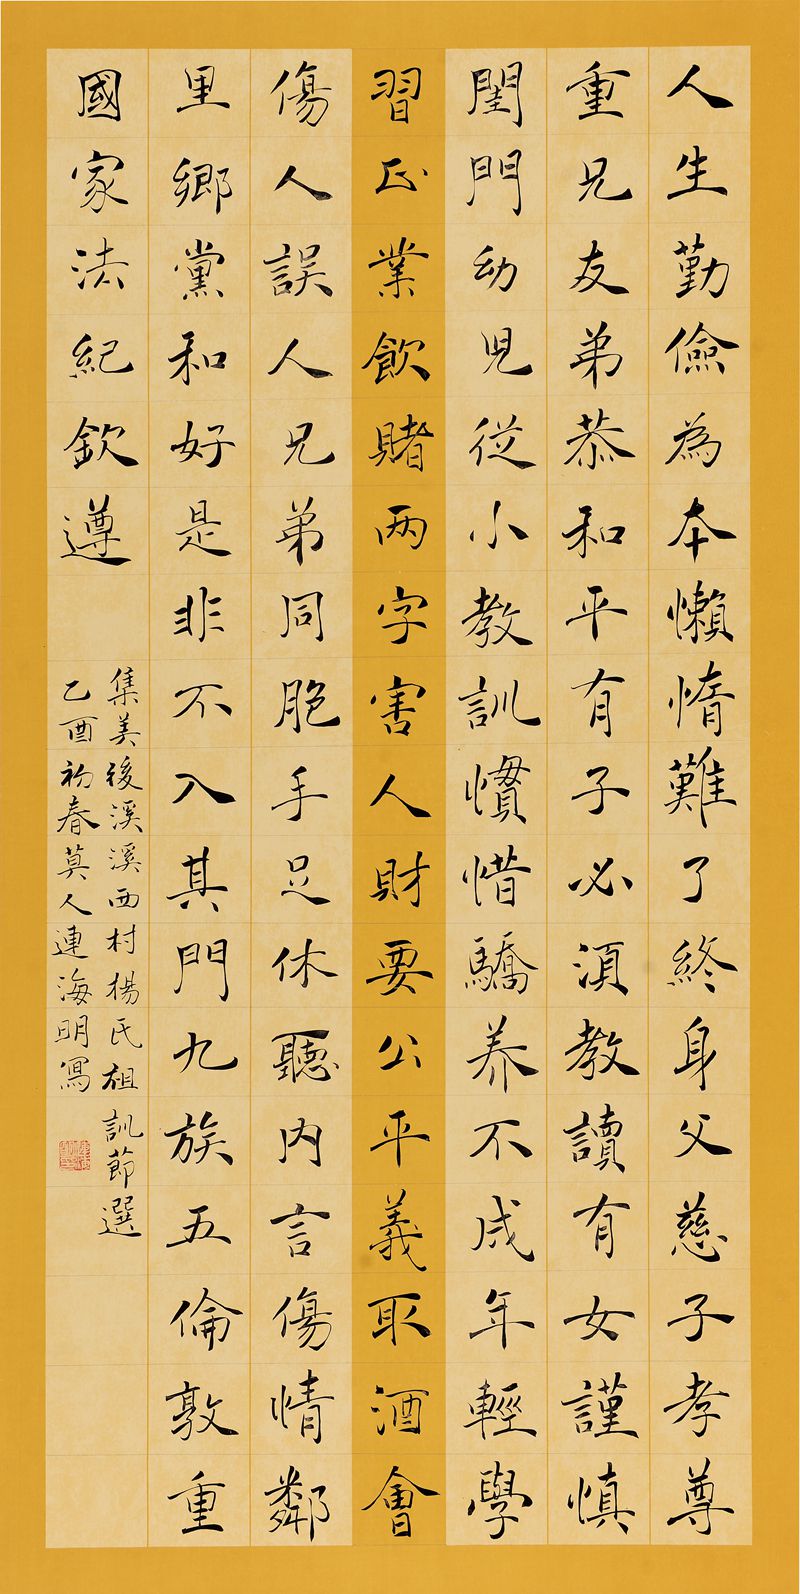 人生勤儉為本懶惰難了終身父慈子孝尊
重兄友弟恭和平有子必須教讀有女謹慎
閨門幼児従小教訓慣惜驕养不成年輕學
習正業飲賭两字害人財要公平義取酒會
傷人誤人兄弟同胞手足休聽内言傷情鄰
里鄉黨和好是非不入其門九族五倫敦重
國家法紀欽遵
集美後溪溪西村楊氏祖訓節選
乙酉初春莫人連海明寫